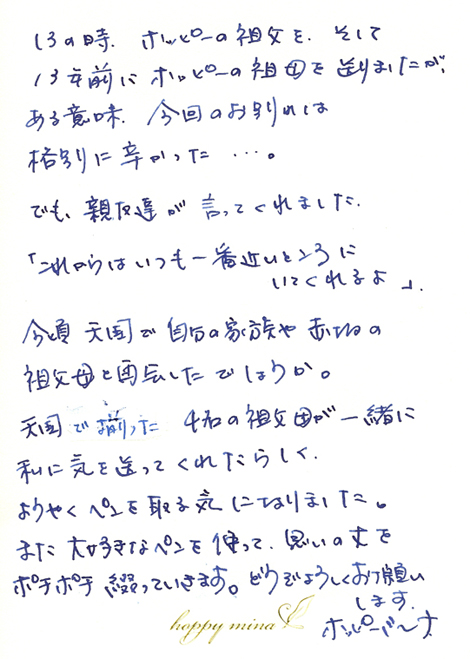 13の時、ホッピーの祖父を、そして
13年前にホッピーの祖母を送りましたが、
ある意味、今回のお別れは
格別に辛かった…。
でも、親友達が言ってくれました、
「これからはいつも一番近いところに
いてくれるよ」、
今頃天国で自分の家族や赤坂の
祖父母と再会したでしょうか。
天国で揃った4名の祖父母が一緒に
私に気を送ってくれたらしく、
ようやくペンを取る気になりました。
また大好きなペンを使って、思いの丈を
ポチポチ綴っていきます。どうぞよろしくお願い
します、
happy mina
ホッピーミーナ